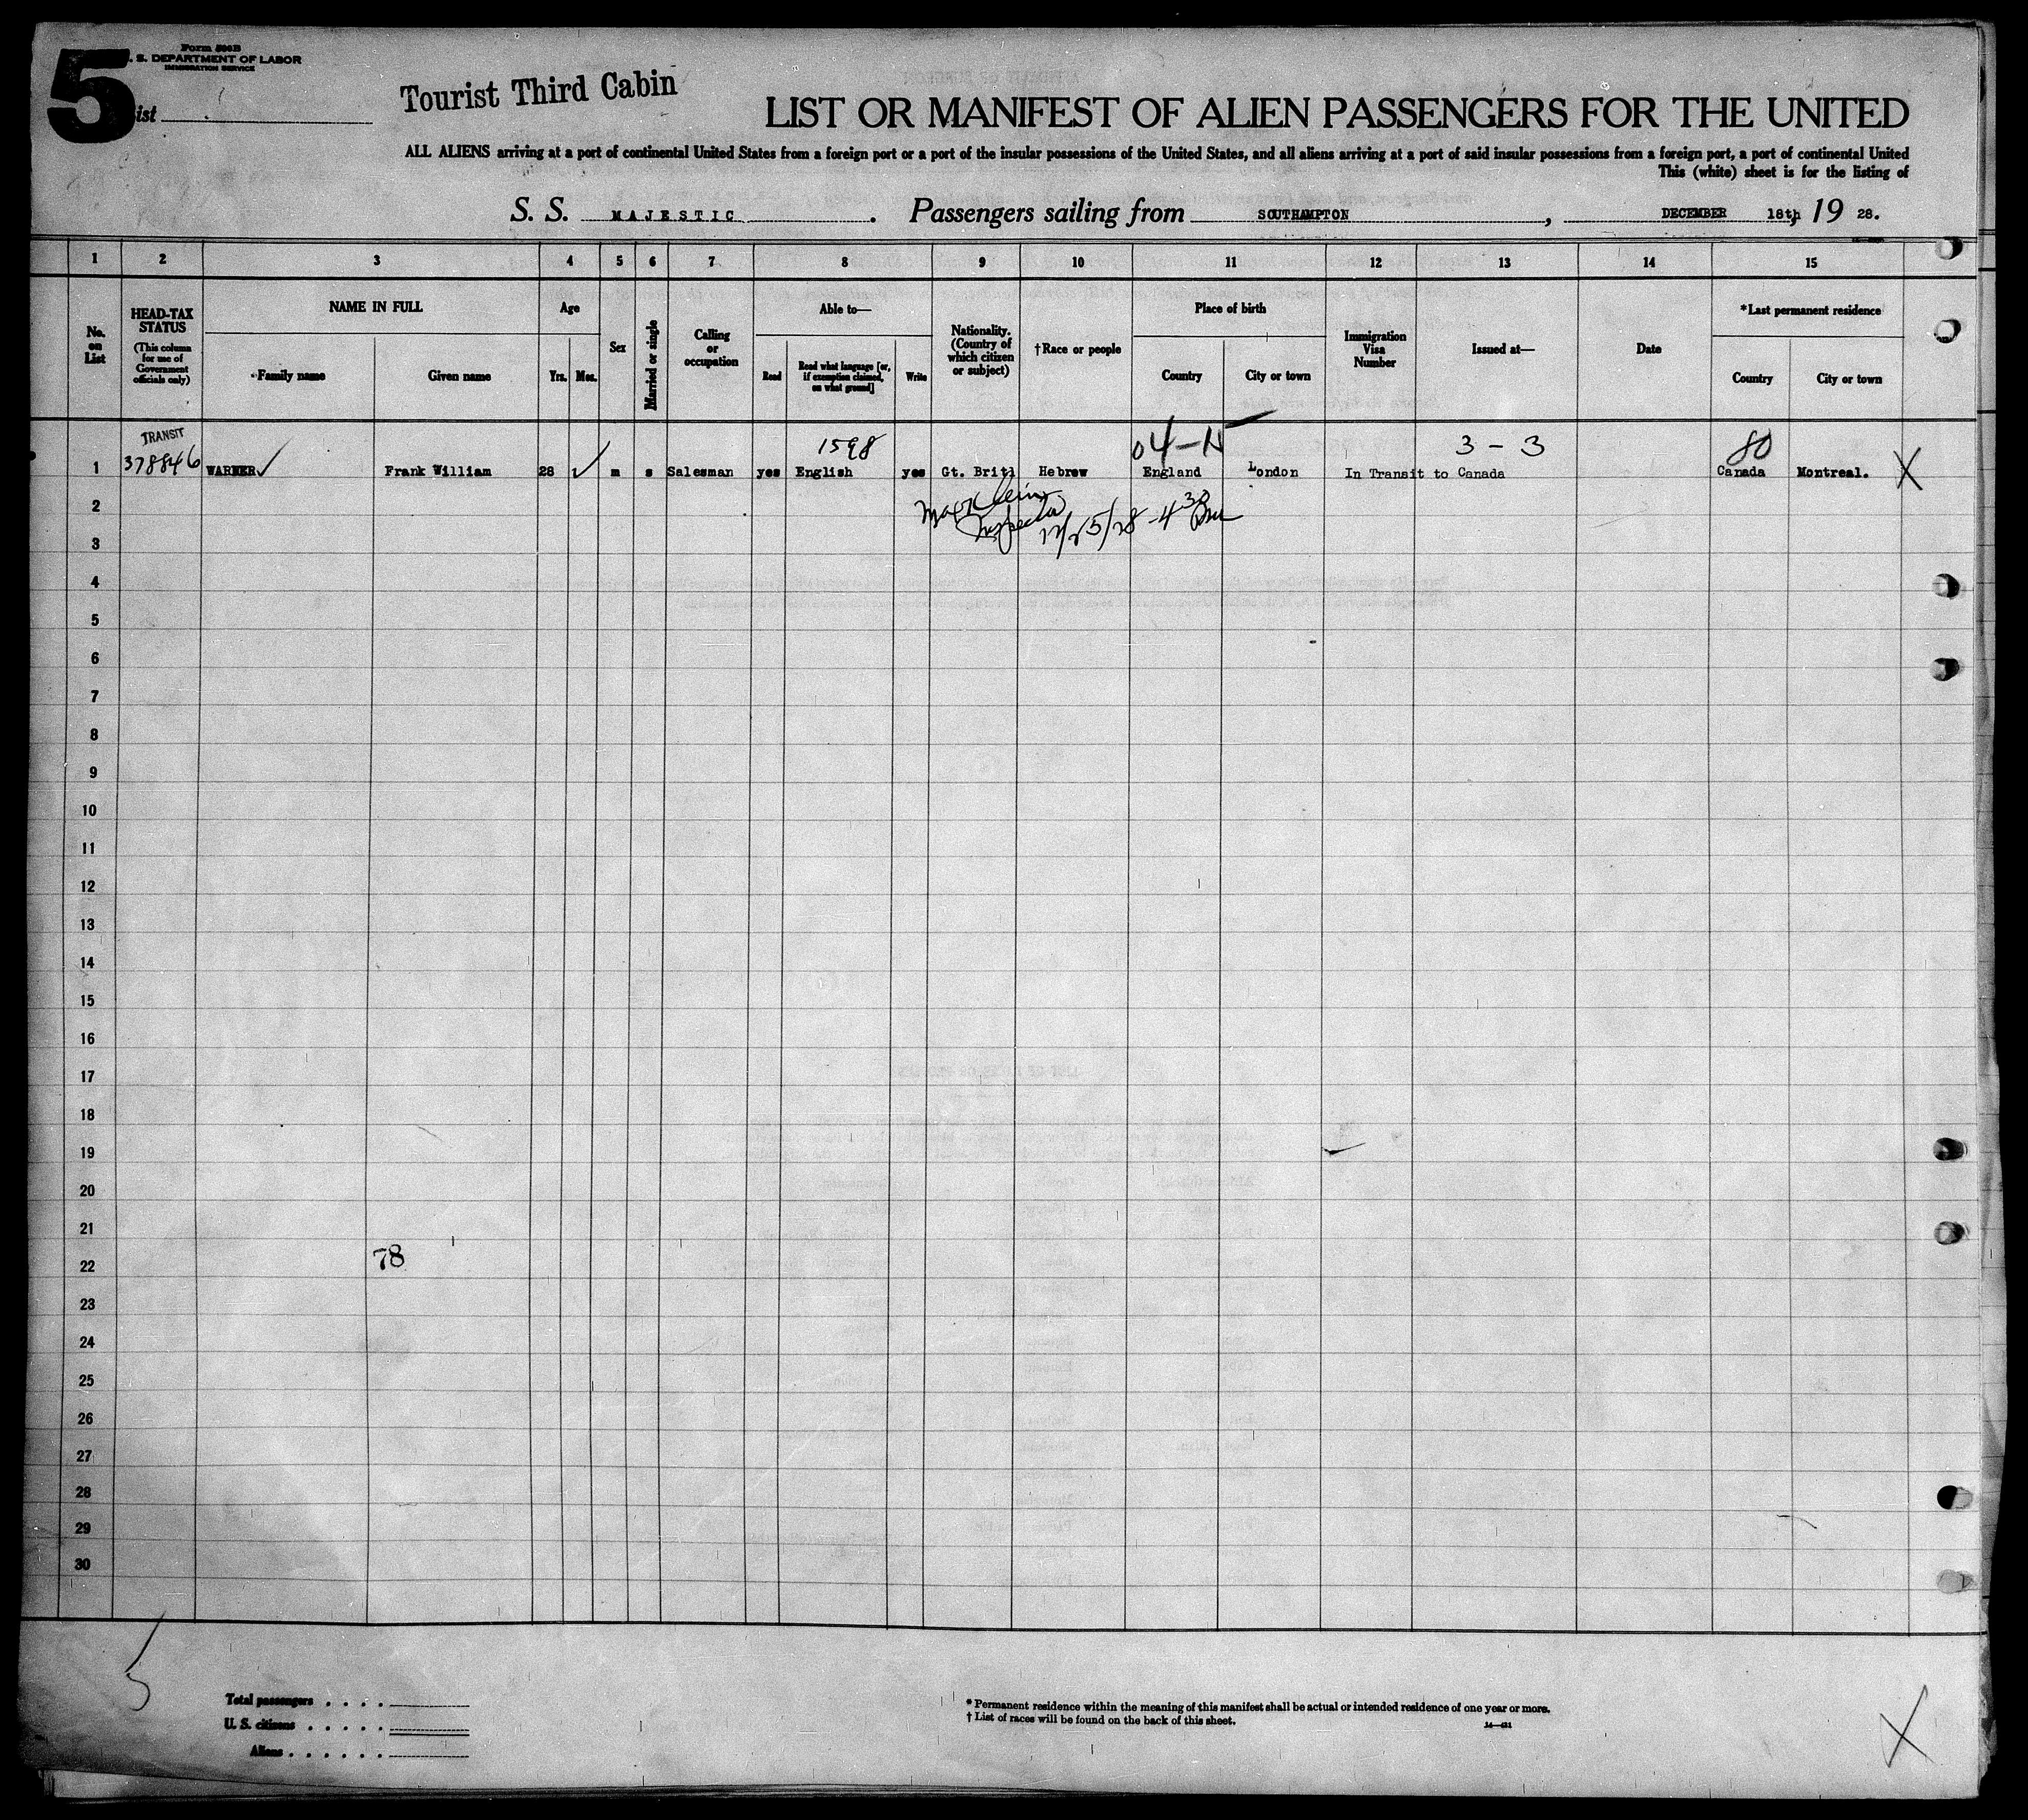 Form 500B
U. S. DEPARTMENT OF LABOR
IMMIGRATION SERVICE
5
List
Tourist Third Cabin
LIST OR MANIFEST OF ALIEN PASSENGERS FOR THE UNITED
ALL ALIENS arriving at a port of continental United States from a foreign port or a port of the insular possessions of the United States, and all aliens arriving at a port of said insular possessions from a foreign port, a port of continental United
This (white) sheet is for the listing of
S. S. MAJESTIC. Passengers sailing from SOUTHAMPTON, DECEMBER 18th, 19 28.
1 2 3 4 5 6 7 8 9 10 11 12 13 14 15
No. on List
HEAD-TAX STATUS (This column for use of Government officials only)
NAME IN FULL
Family name
Given name
Age
Yrs. Mos.
Sex
Married or single
Calling or occupation
Able to—
Read
Read what language [or, if exemption claimed, on what ground]
Write
Nationality. (Country of which citizen or subject)
†Race or people
Place of birth
Country
City or town
Immigration Visa Number
Issued at—
Date
*Last permanent residence
Country
City or town
TRANSIT 1598 04-N 3 - 3 80
1 378846 WARNER Frank William 28 m s Salesman yes English yes Gt. Brit Hebrew England London In Transit to Canada Canada Montreal. X
2 Max Klein
3 Inspector 12/25/28 - 4 30 Pm
4
5
6
7
8
9
10
11
12
13
14
15
16
17
18
19
20
21
22 78
23
24
25
26
27
28
29
30
5
Total passengers
U. S. citizens
Aliens
* Permanent residence within the meaning of this manifest shall be actual or intended residence of one year or more.
† List of races will be found on the back of this sheet.
X